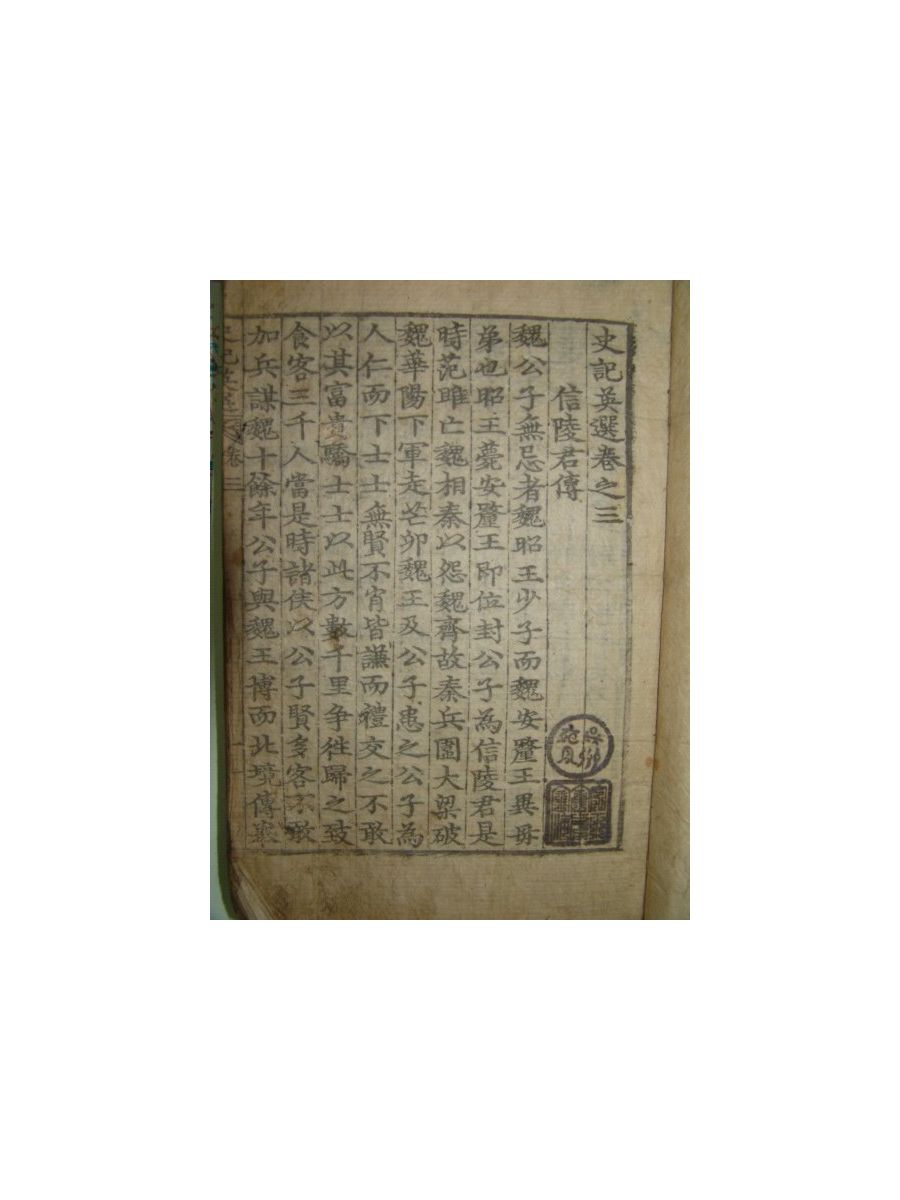 史記英選卷之三
信陵君傳
魏公子無忌者魏昭王少子而魏安釐王異母
弟也昭王薨安釐王即位封公子為信陵君是
時范雎亡魏相秦以怨魏齊故秦兵圍大梁破
魏華陽下軍走芒卯魏王及公子患之公子為
人仁而下士士無賢不肖皆謙而禮交之不敢
以其富貴驕士士以此方數千里争徃歸之致
食客三千人當是時諸侯以公子賢多客不敢
加兵謀魏十餘年公子與魏王博而北境傳
卷三